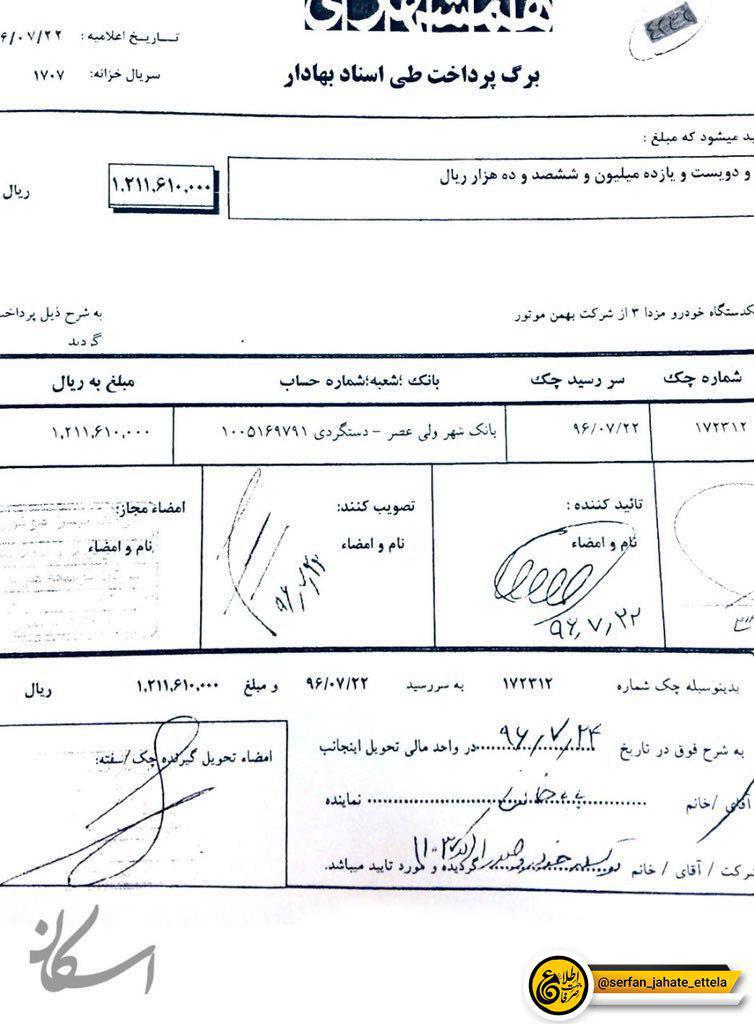 همشهری
تــاریخ اعلامیه : ۶/۰۷/۲۲
برگ پرداخت طی اسناد بهادار
سریال خزانه: ۱۷۰۷
ید میشود که مبلغ :
و دویست و یازده میلیون و ششصد و ده هزار ریال
۱.۲۱۱,۶۱۰,۰۰۰ ریال
کدستگاه خودرو مزدا ۳ از شرکت بهمن موتور
به شرح ذیل پرداخت
گردید
شماره چک سر رسید چک بانک ؛شعبه؛شماره حساب مبلغ به ریال
۱۷۲۳۱۲ ۹۶/۰۷/۲۲ بانک شهر ولی عصر - دستگردی ۱۰۰۵۱۶۹۷۹۱ ۱,۲۱۱,۶۱۰,۰۰۰
تائید کننده : تصویب کنند: امضاء مجاز:
نام و امضاء نام و امضاء نام و امضاء
۹۶,۷,۲۲
بدینوسیله چک شماره ۱۷۲۳۱۲ به سررسید ۹۶/۰۷/۲۲ و مبلغ ۱,۲۱۱,۶۱۰,۰۰۰ ریال
به شرح فوق در تاریخ ۹۶,۷,۲۴ در واحد مالی تحویل اینجانب
آقای /خانم نماینده
شرکت / آقای / خانم گردیده و مورد تایید میباشد.
امضاء تحویل گیرنده چک /سفته:
اسکان
اطلاع
جهت
صرفا
@serfan_jahate_ettela